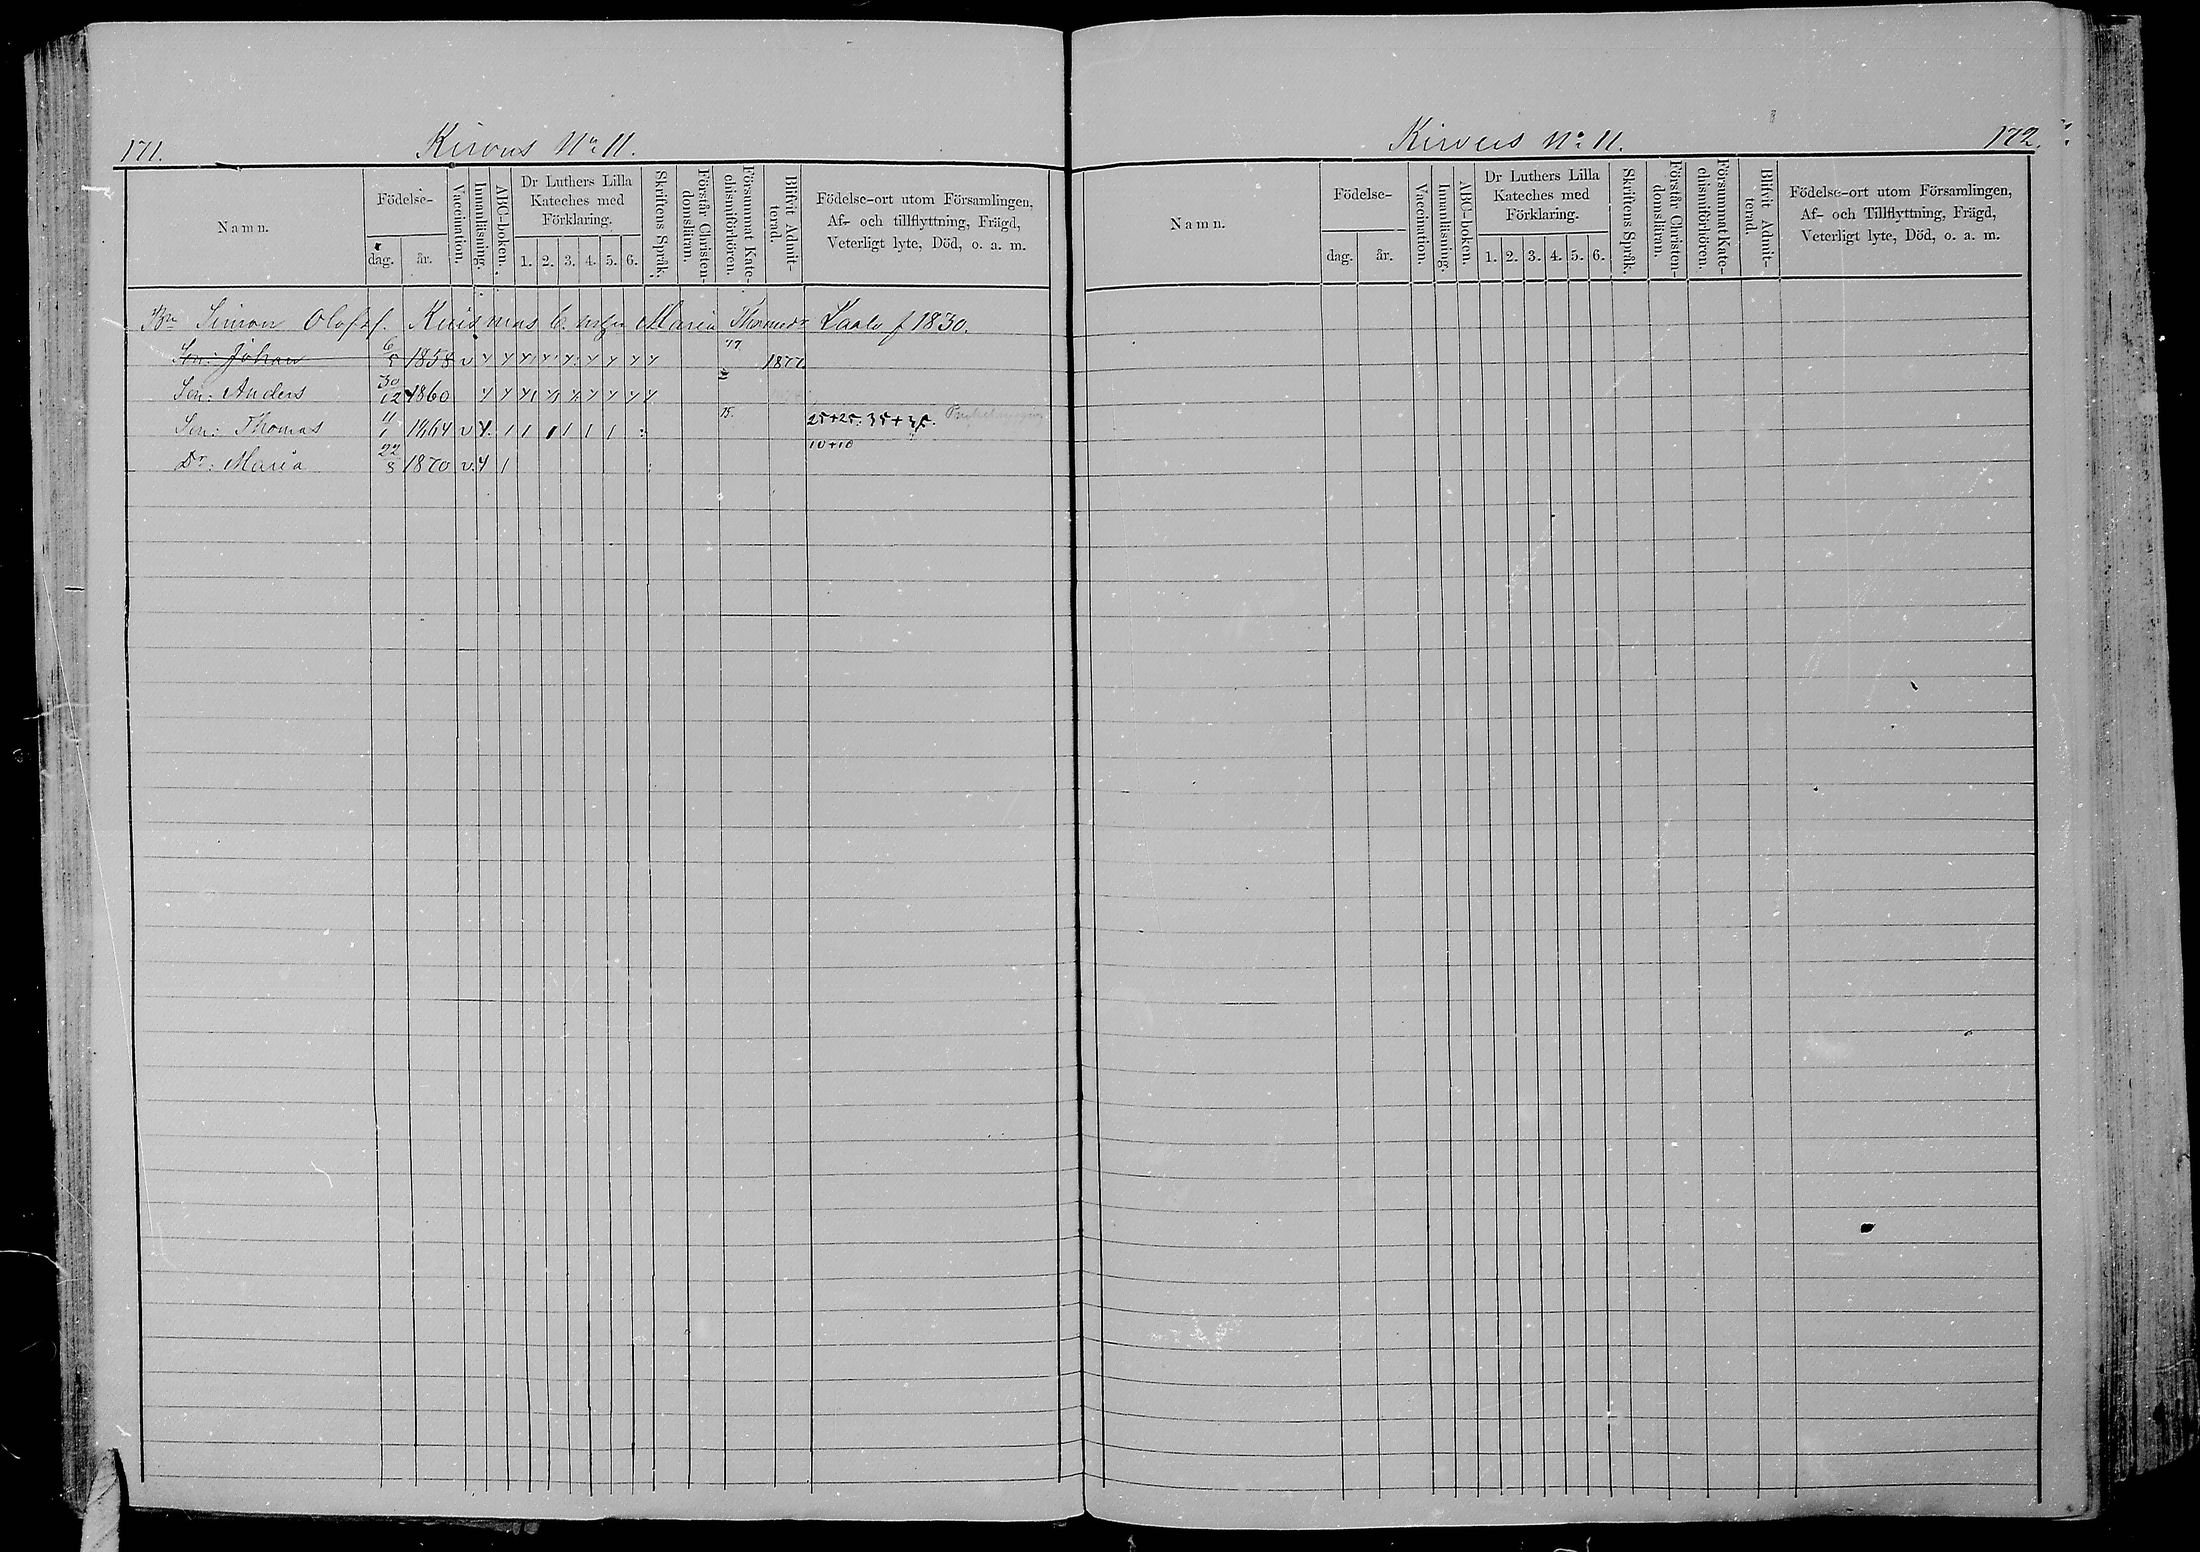 171. Kirvus No 11.
Namn. Födelse- dag. år. Vaccination. Innanläsning. ABC-boken. Dr Luthers Lilla Kateches med Förklaring. 1. 2. 3. 4. 5. 6. Skriftens Språk. Förstår Christendomsläran. Försummat Katechismiförhören. Blifvit Admitterad. Födelse-ort utom Församlingen, Af- och tillflyttning, Frägd, Veterligt lyte, Död, o. a. m.
Bn Simon Olofsf. Kuismas Maria Thomasdr Laalo f 1830.
Son: Johan 6/5 1858 v 77 1877
Son: Anders 30/12 1860
Son: Thomas 11/1 1864 v 75. 25+25. 35+35.
10+10
Dr: Maria 22/8 1870 v.
Kirvus No 11. 172.
Namn. Födelse- dag. år. Vaccination. Innanläsning. ABC-boken. Dr Luthers Lilla Kateches med Förklaring. 1. 2. 3. 4. 5. 6. Skriftens Språk. Förstår Christendomsläran. Försummat Katechismiförhören. Blifvit Admitterad. Födelse-ort utom Församlingen, Af- och Tillflyttning, Frägd, Veterligt lyte, Död, o. a. m.